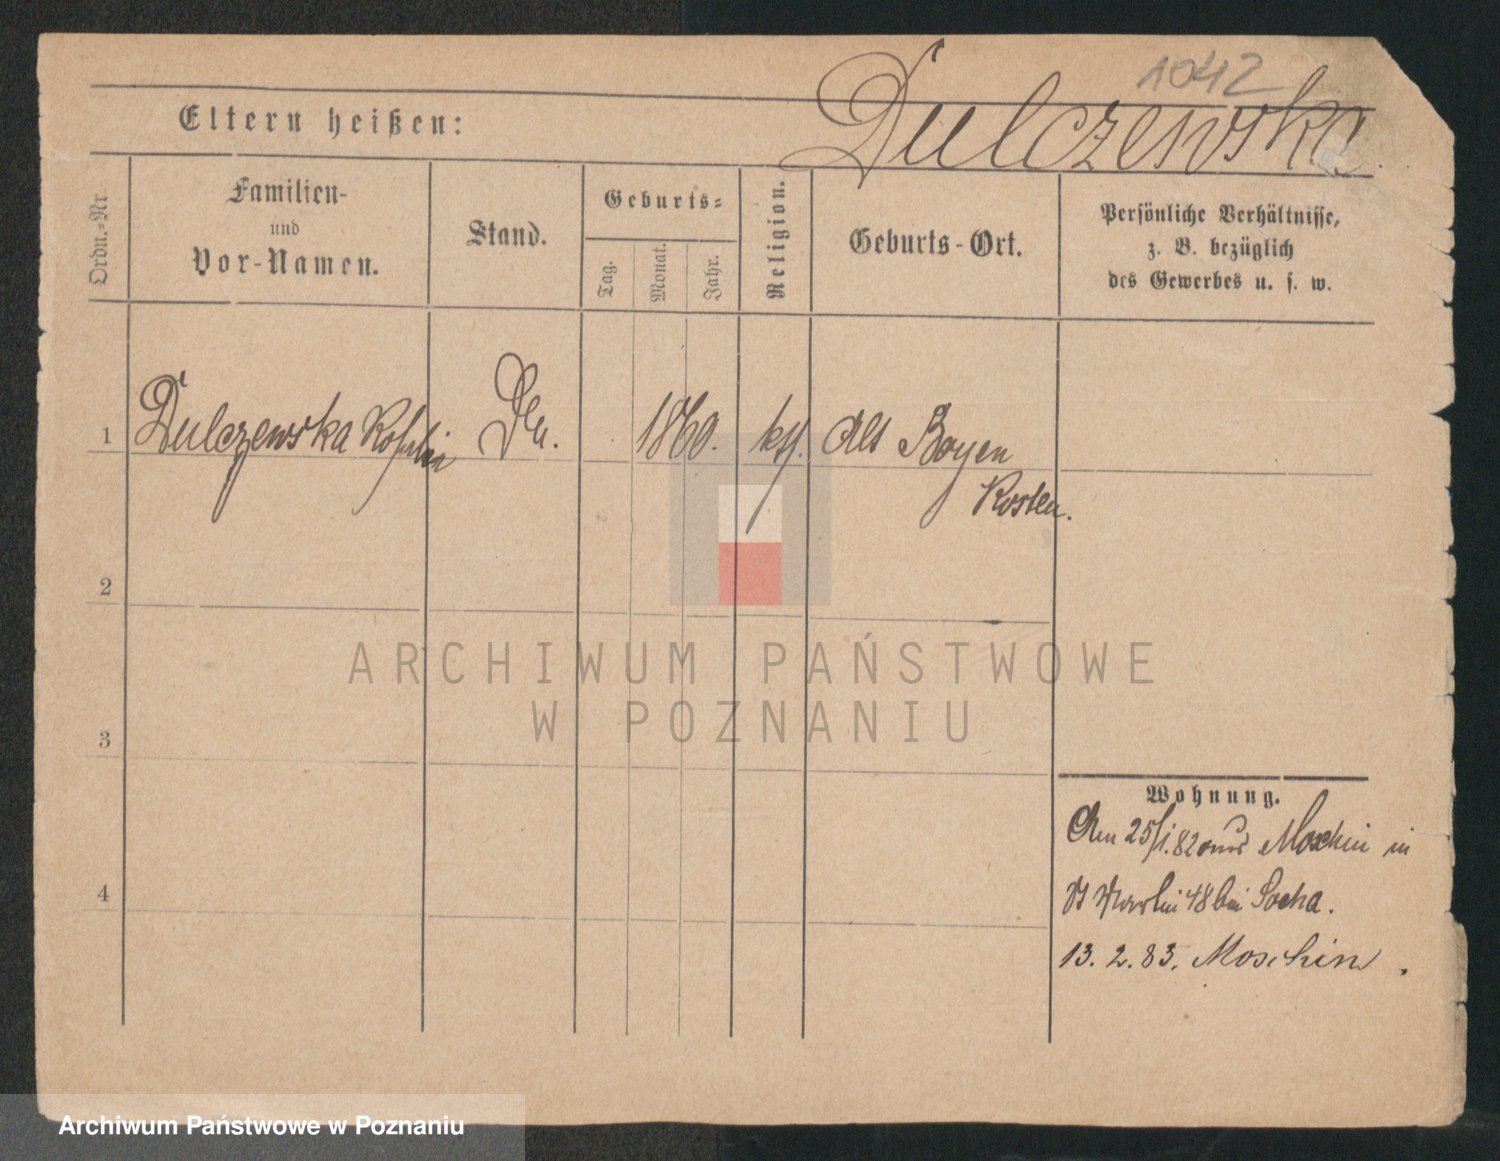 1042
Dulczewska
Eltern heißen:
Ordn.-Nr.
Familien-
und
Vor-Namen.
Stand.
Geburts-
Tag.
Monat.
Jahr.
Religion.
Geburts-Ort.
Persönliche Verhältnisse,
z. B. bezüglich
des Gewerbes u. s. w.
1 Dulczewska Rosalie 1860. kth. Alt Boyen
Kosten.
2
3
4
Wohnung.
Am 25/1.82 aus Moschin in
St Martin 48 bei Socha.
13. 2. 83. Moschin.
ARCHIWUM PAŃSTWOWE
W POZNANIU
Archiwum Państwowe w Poznaniu